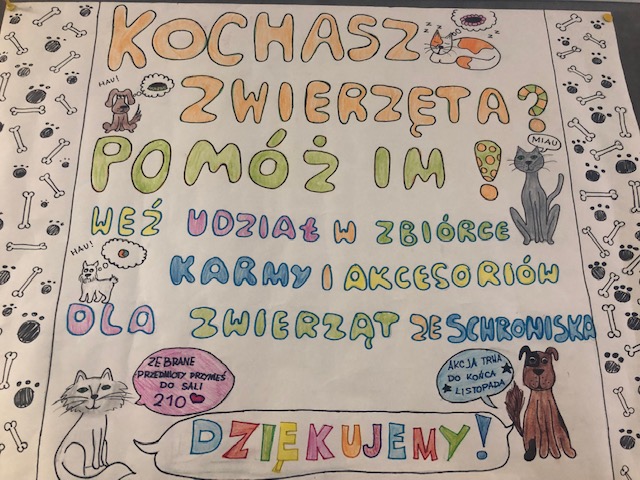 KOCHASZ
HAU!
ZWIERZĘTA?
POMÓŻ IM!
MIAU
WEŹ UDZIAŁ W ZBIÓRCE
HAU!
KARMY I AKCESORIÓW
DLA ZWIERZĄT ZE SCHRONISKA
ZEBRANE
PRZEDMIOTY PRZYNIEŚ
DO SALI
210
AKCJA TRWA
DO KOŃCA
LISTOPADA
DZIĘKUJEMY!